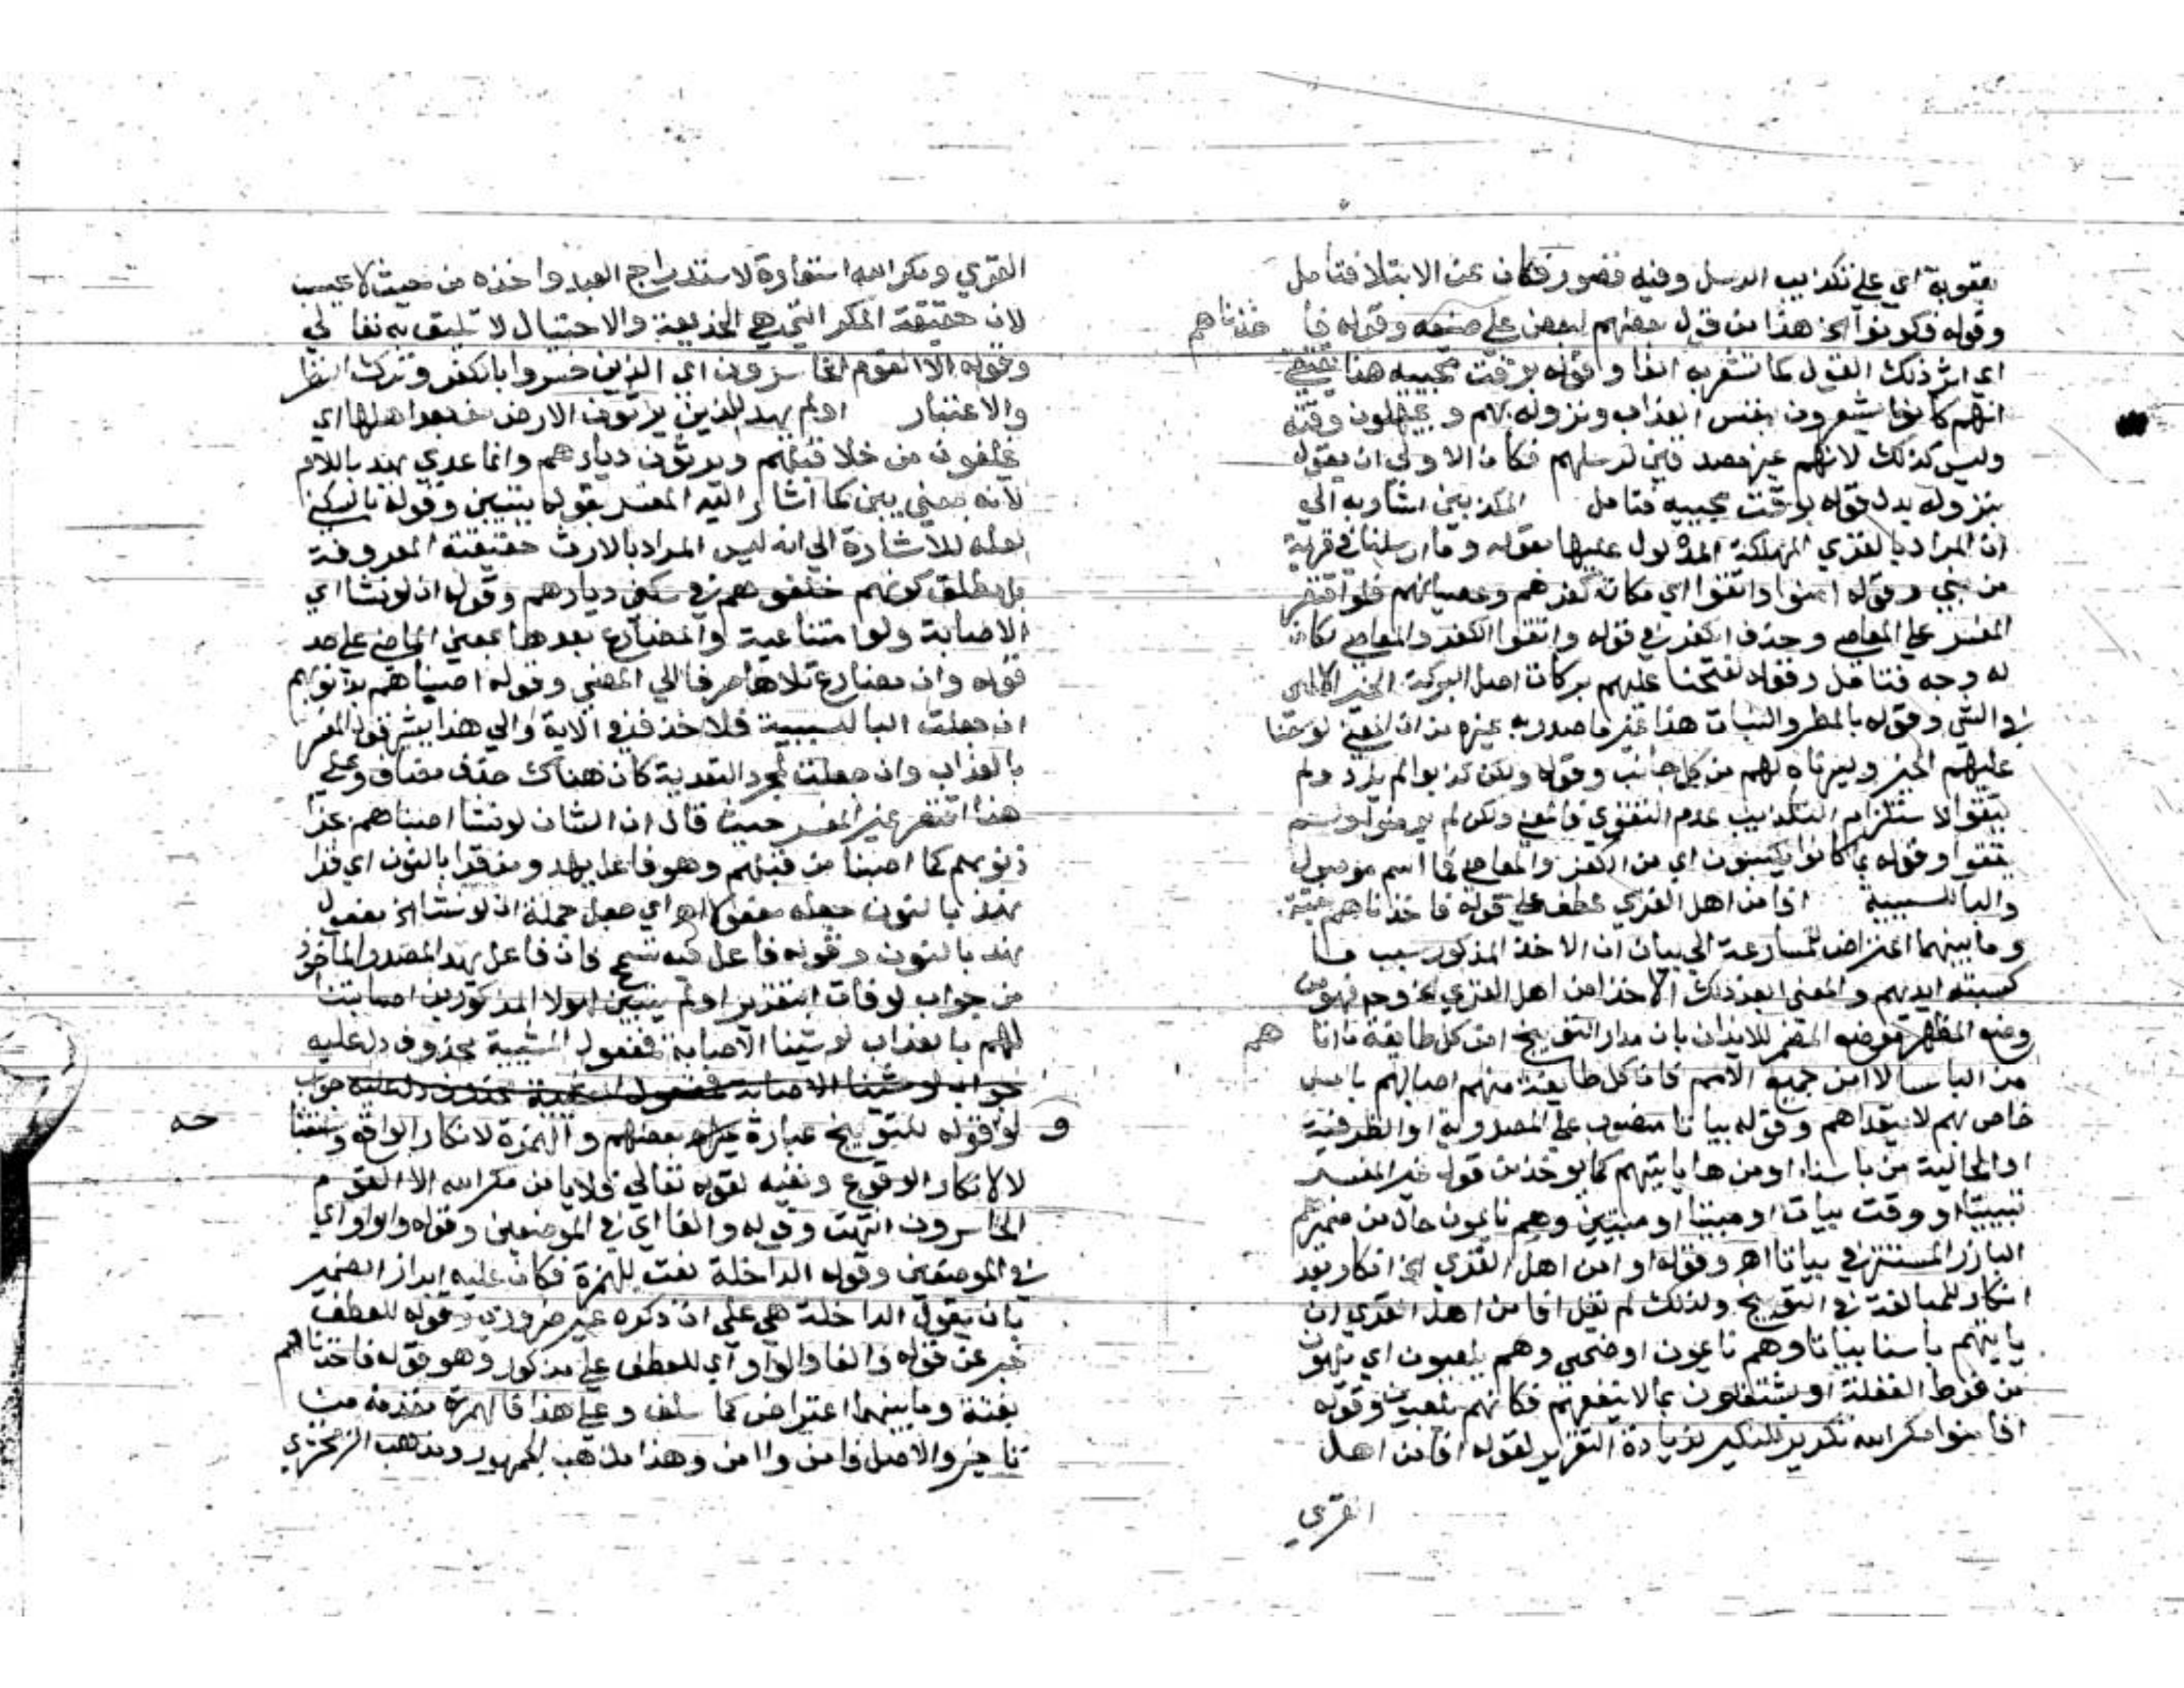 بعقوبة اي علي تكذيب الرسل وفيه قصور فكان عن الابتلا فتامل
وقوله فكونوا الخ هذا من قول بعضهم لبعض علي وقوله فاخذناهم
اي اثر ذلك القول كما تشعر به الفا وقوله بوقت مجيبه هذا يقتضي
انهم كانوا يشعرون بنفس العذاب ونزوله بهم ويجهلون وقته
وليس كذلك لانهم غير مصدقين لرسلهم فكان الاولي ان يقول
بنزوله بدل قوله بوقت مجيبه فتامل المكذبين اشار به الي
ان المراد بالقري المهلكة المدلول عليها بقوله وما ارسلنا في قرية
من نبي وقوله امنوا واتقوا اي مكان كفرهم وعصيانهم فلو اقتصر
المفسر علي المعاصي وحذف الكفر في قوله واتقوا الكفر والمعاصي لكان
له وجه فتامل وقوله لفتحنا عليهم بركات اصل البركة الخير الالهي
في الشي وقوله بالمطر والنبات هذا غير ما صدر به غيره من ان المعني لوسعنا
عليهم الخير ويسرناه لهم من كل جانب وقوله ولكن كذبوا لم يزد ولم
يتقوا لاستلزام التكذيب عدم التقوي فالمعني ولكن لم يومنوا ولم
يتقوا وقوله بما كانوا يكسبون اي من الكفر والمعاصي فما اسم موصول
والبا للسببية افامن اهل القري عطف علي قوله فاخذناهم بغتة
وما بينهما اعتراض للمسارعة الي بيان ان الاخذ المذكور سبب ما
كسبته ايديهم والمعني ابعد ذلك الاخذ امن اهل القري
وضع المظهر موضع المضمر للايذان بان مدار التوبيخ امن كل طايفة ما اتاهم
من الباس لا امن جميع الامم فان كل طايفة منهم اصابهم باس
خاص بهم لا يتعداهم وقوله بياتا منصوب علي المصدرية او الظرفية
او الحالية من باسنا او من ها ياتيهم كما يوخذ من قول غير المفسر
تبييتا او وقت بيات او مبيتا او مبيتين وهم نايمون حال من ضميرهم
البارز او المستتر في بياتا اهر وقوله او امن اهل القري الخ انكار بعد
انكار للمبالغة في التوبيخ ولذلك لم يقل افامن اهل القري ان
ياتيهم باسنا بياتا وهم نايمون او ضحي وهم يلعبون اي يلهون
من فرط الغفلة او يشتغلون بما لا ينفعهم فكانهم يلعبون وقوله
افامنوا مكر الله تكرير للنكير لزيادة التقرير لقوله افامن اهل
القري
القري ومكر الله استعارة لاستدراج العبد واخذه من حيث لا يحتسب
لان حقيقة المكر التي هي الخديعة والاحتيال لا تليق به تعالي
وقوله الا القوم الخاسرون اي الذين خسروا بالكفر وترك النظر
والاعتبار اولم يهد للذين يرثون الارض من بعد اهلها اي
يخلفون من خلا قبلهم ويرثون ديارهم وانما عدي يهد باللام
لانه بمعني يبين كما اشار اليه المفسر بقوله يتبين وقوله بالسكني
لعله للاشارة الي انه ليس المراد بالارث حقيقته المعروفة
بل مطلق كونهم خلفوهم في سكني ديارهم وقوله ان لو نشا اي
الاصابة ولو امتناعية والمضارع بعدها بمعني الماضي علي حد
قوله وان مضارع تلاها صرفا الي المضي وقوله اصبناهم بذنوبهم
ان جعلت البا للسببية فلا حذف في الاية والي هذا يشير قول المفسر
بالعذاب وان جعلت لمجرد التعدية كان هناك حذف مضاف وعلي
هذا اقتصر غير المفسر حيث قال ان الشان لو نشا اصبناهم بجزا
ذنوبهم كما اصبنا من قبلهم وهو فاعل يهد ومن قرا بالنون اي قرا
نهد بالنون جعله مفعولا اهر اي جعل جملة ان لو نشا الخ مفعول
نهد بالنون وقوله فاعل فيه تسمح فان فاعل يهد المصدر الماخوذ
من جواب لو فان التقدير اولم يتبين لهولا المذكورين اصابتنا
لهم بالعذاب لو شينا الاصابة فمفعول المشيية محذوف دل عليه
جواب لو شينا الاصابة فمفعول المشيية محذوف دل عليه جواب
لو وقوله للتوبيخ عبارة غيره بعضهم والهمزة لانكار الواقع واستقباحه
لا لانكار الوقوع ونفيه لقوله تعالي فلا يامن مكر الله الا القوم
الخاسرون انتهت وقوله والفا اي في الموضعين وقوله والواو اي
في الموضعين وقوله الداخلة نعت للهمزة فكان عليه ابراز الضمير
بان يقول الداخلة هي علي ان ذكره غير ضروري وقوله للعطف
خبر عن قوله والفا والواو اي للعطف علي مذكور وهو قوله فاخذناهم
بغتة وما بينهما اعتراض كما سلف وعلي هذا فالهمزة مقدمة من
تاخير والاصل فامن وامن وهذا مذهب الجمهور ومذهب الزمخشري